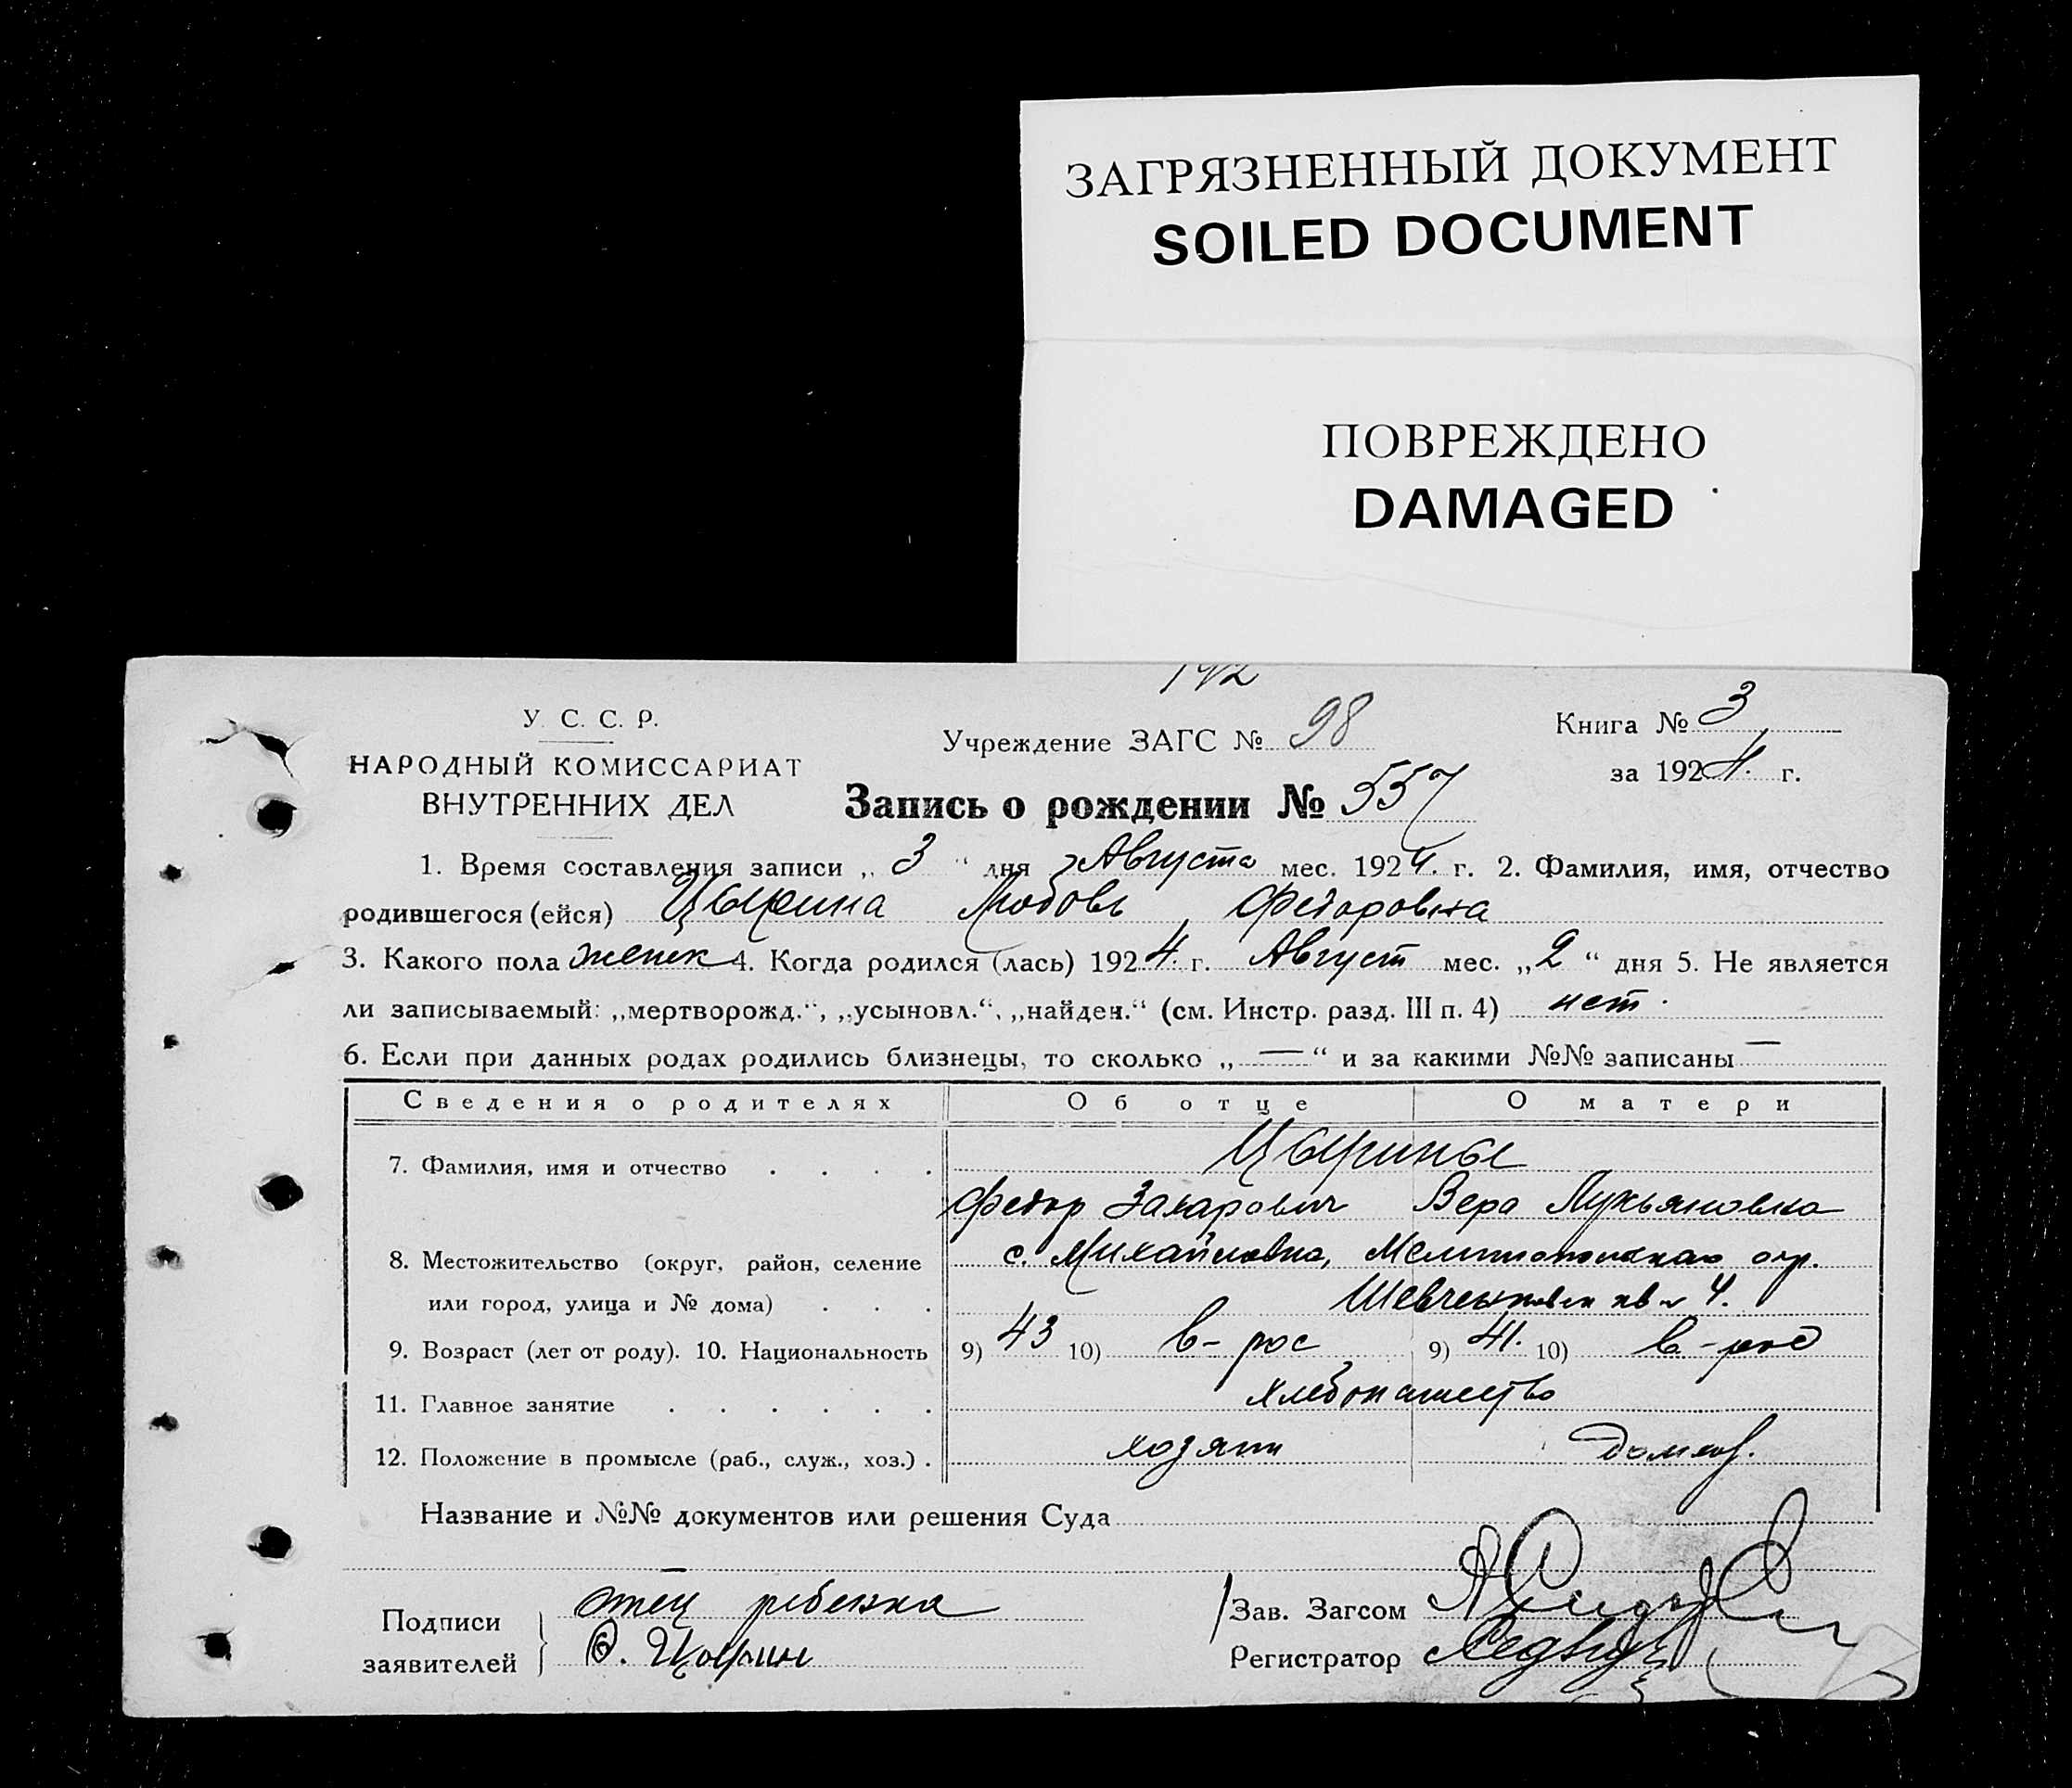 ЗАГРЯЗНЕННЫЙ ДОКУМЕНТ
SOILED DOCUMENT
ПОВРЕЖДЕНО
DAMAGED
У. С. С. Р.
НАРОДНЫЙ КОМИССАРИАТ
ВНУТРЕННИХ ДЕЛ
Учреждение ЗАГС № 98
Книга № 3
за 1924. г.
Запись о рождении № 557
1. Время составления записи „ 3 “ дня Августа мес. 1924. г. 2. Фамилия, имя, отчество
родившегося (ейся) Цырина Любовь Федоровна
3. Какого пола женск 4. Когда родился (лась) 1924. г. Август мес. „2“ дня 5. Не является
ли записываемый: „мертворожд.“, „усыновл.“, „найден.“ (см. Инстр. разд. III п. 4) нет.
6. Если при данных родах родились близнецы, то сколько „ — “ и за какими №№ записаны —
Сведения о родителях Об отце О матери
7. Фамилия, имя и отчество . . . . Цырины
Федор Захарович Вера Лукьяновна
8. Местожительство (округ, район, селение с. Михайловка, Мелитопольская окр.
или город, улица и № дома) . . . 4.
9. Возраст (лет от роду). 10. Национальность 9) 43 10) в-рос 9) 41. 10) в-рос
11. Главное занятие . . . . . . хлебопашество
12. Положение в промысле (раб., служ., хоз.) . хозяин домхоз.
Название и №№ документов или решения Суда
Подписи
заявителей
отец ребенка
Ф. Цырин
Зав. Загсом
Регистратор